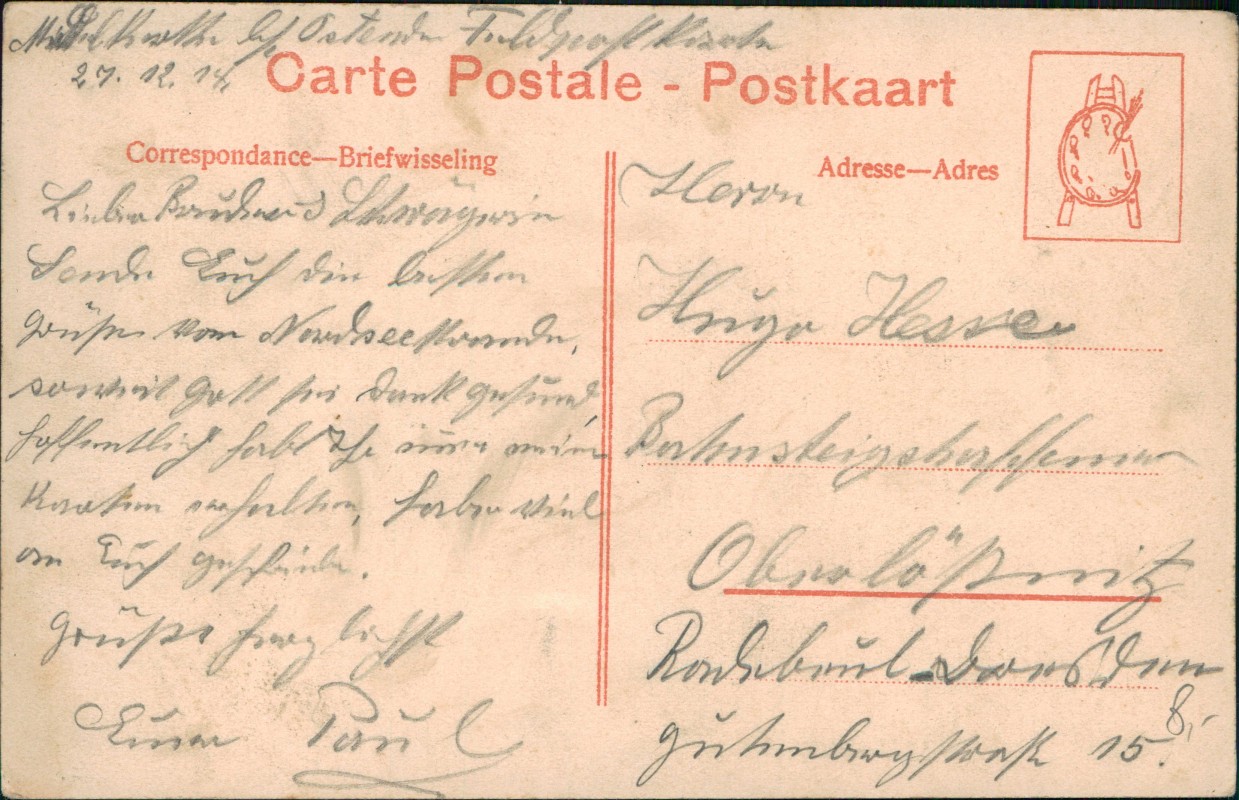 Middelkerke bei Ostende Feldpostkarte
27. 12. 14.
Carte Postale - Postkaart
Correspondance—Briefwisseling
Lieber Bruder u Schwägerin
Sende Euch die besten
Grüße vom Nordseestrande,
soweit Gott sei Dank gesund,
hoffentlich habt Ihr meine
Karten erhalten, habe viel
an Euch geschrieben.
Grüße herzlichst
Euer Paul
Adresse—Adres
Herrn
Hugo Hesse
Bahnsteigschaffner
Oberlößnitz
Radebeul-Dresden
Gutenbergstraße 15.
8,-